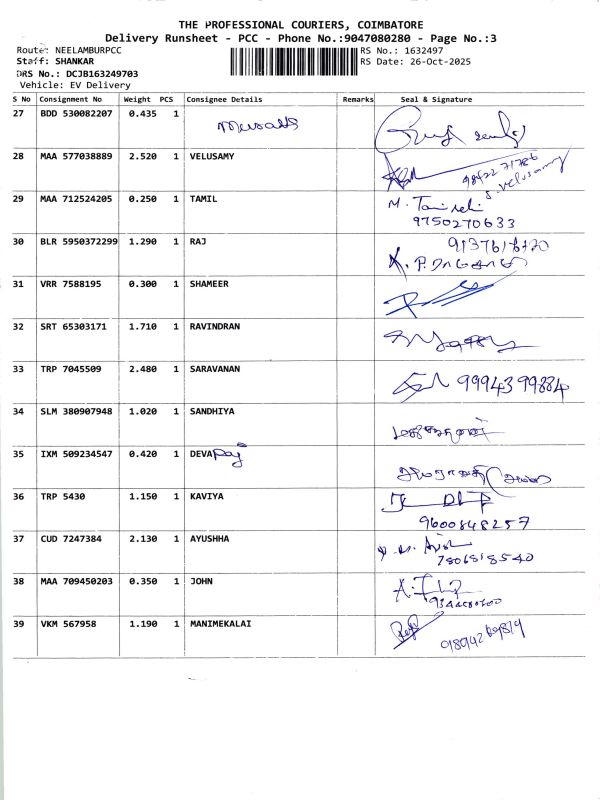 THE PROFESSIONAL COURIERS, COIMBATORE
Delivery Runsheet - PCC - Phone No.:9047080280 - Page No.:3
Route: NEELAMBURPCC RS No.: 1632497
Staff: SHANKAR RS Date: 26-Oct-2025
DRS No.: DCJB163249703
Vehicle: EV Delivery
S No Consignment No Weight PCS Consignee Details Remarks Seal & Signature
27 BDD 530082207 0.435 1
28 MAA 577038889 2.520 1 VELUSAMY 98422 71786
S. Velusamy
29 MAA 712524205 0.250 1 TAMIL M. Tamil
9750270633
30 BLR 5950372299 1.290 1 RAJ
31 VRR 7588195 0.300 1 SHAMEER
32 SRT 65303171 1.710 1 RAVINDRAN
33 TRP 7045509 2.480 1 SARAVANAN 99943 99884
34 SLM 380907948 1.020 1 SANDHIYA
35 IXM 509234547 0.420 1 DEVA Raj
36 TRP 5430 1.150 1 KAVIYA
9600848257
37 CUD 7247384 2.130 1 AYUSHHA
7806818540
38 MAA 709450203 0.350 1 JOHN
39 VKM 567958 1.190 1 MANIMEKALAI
9894269819